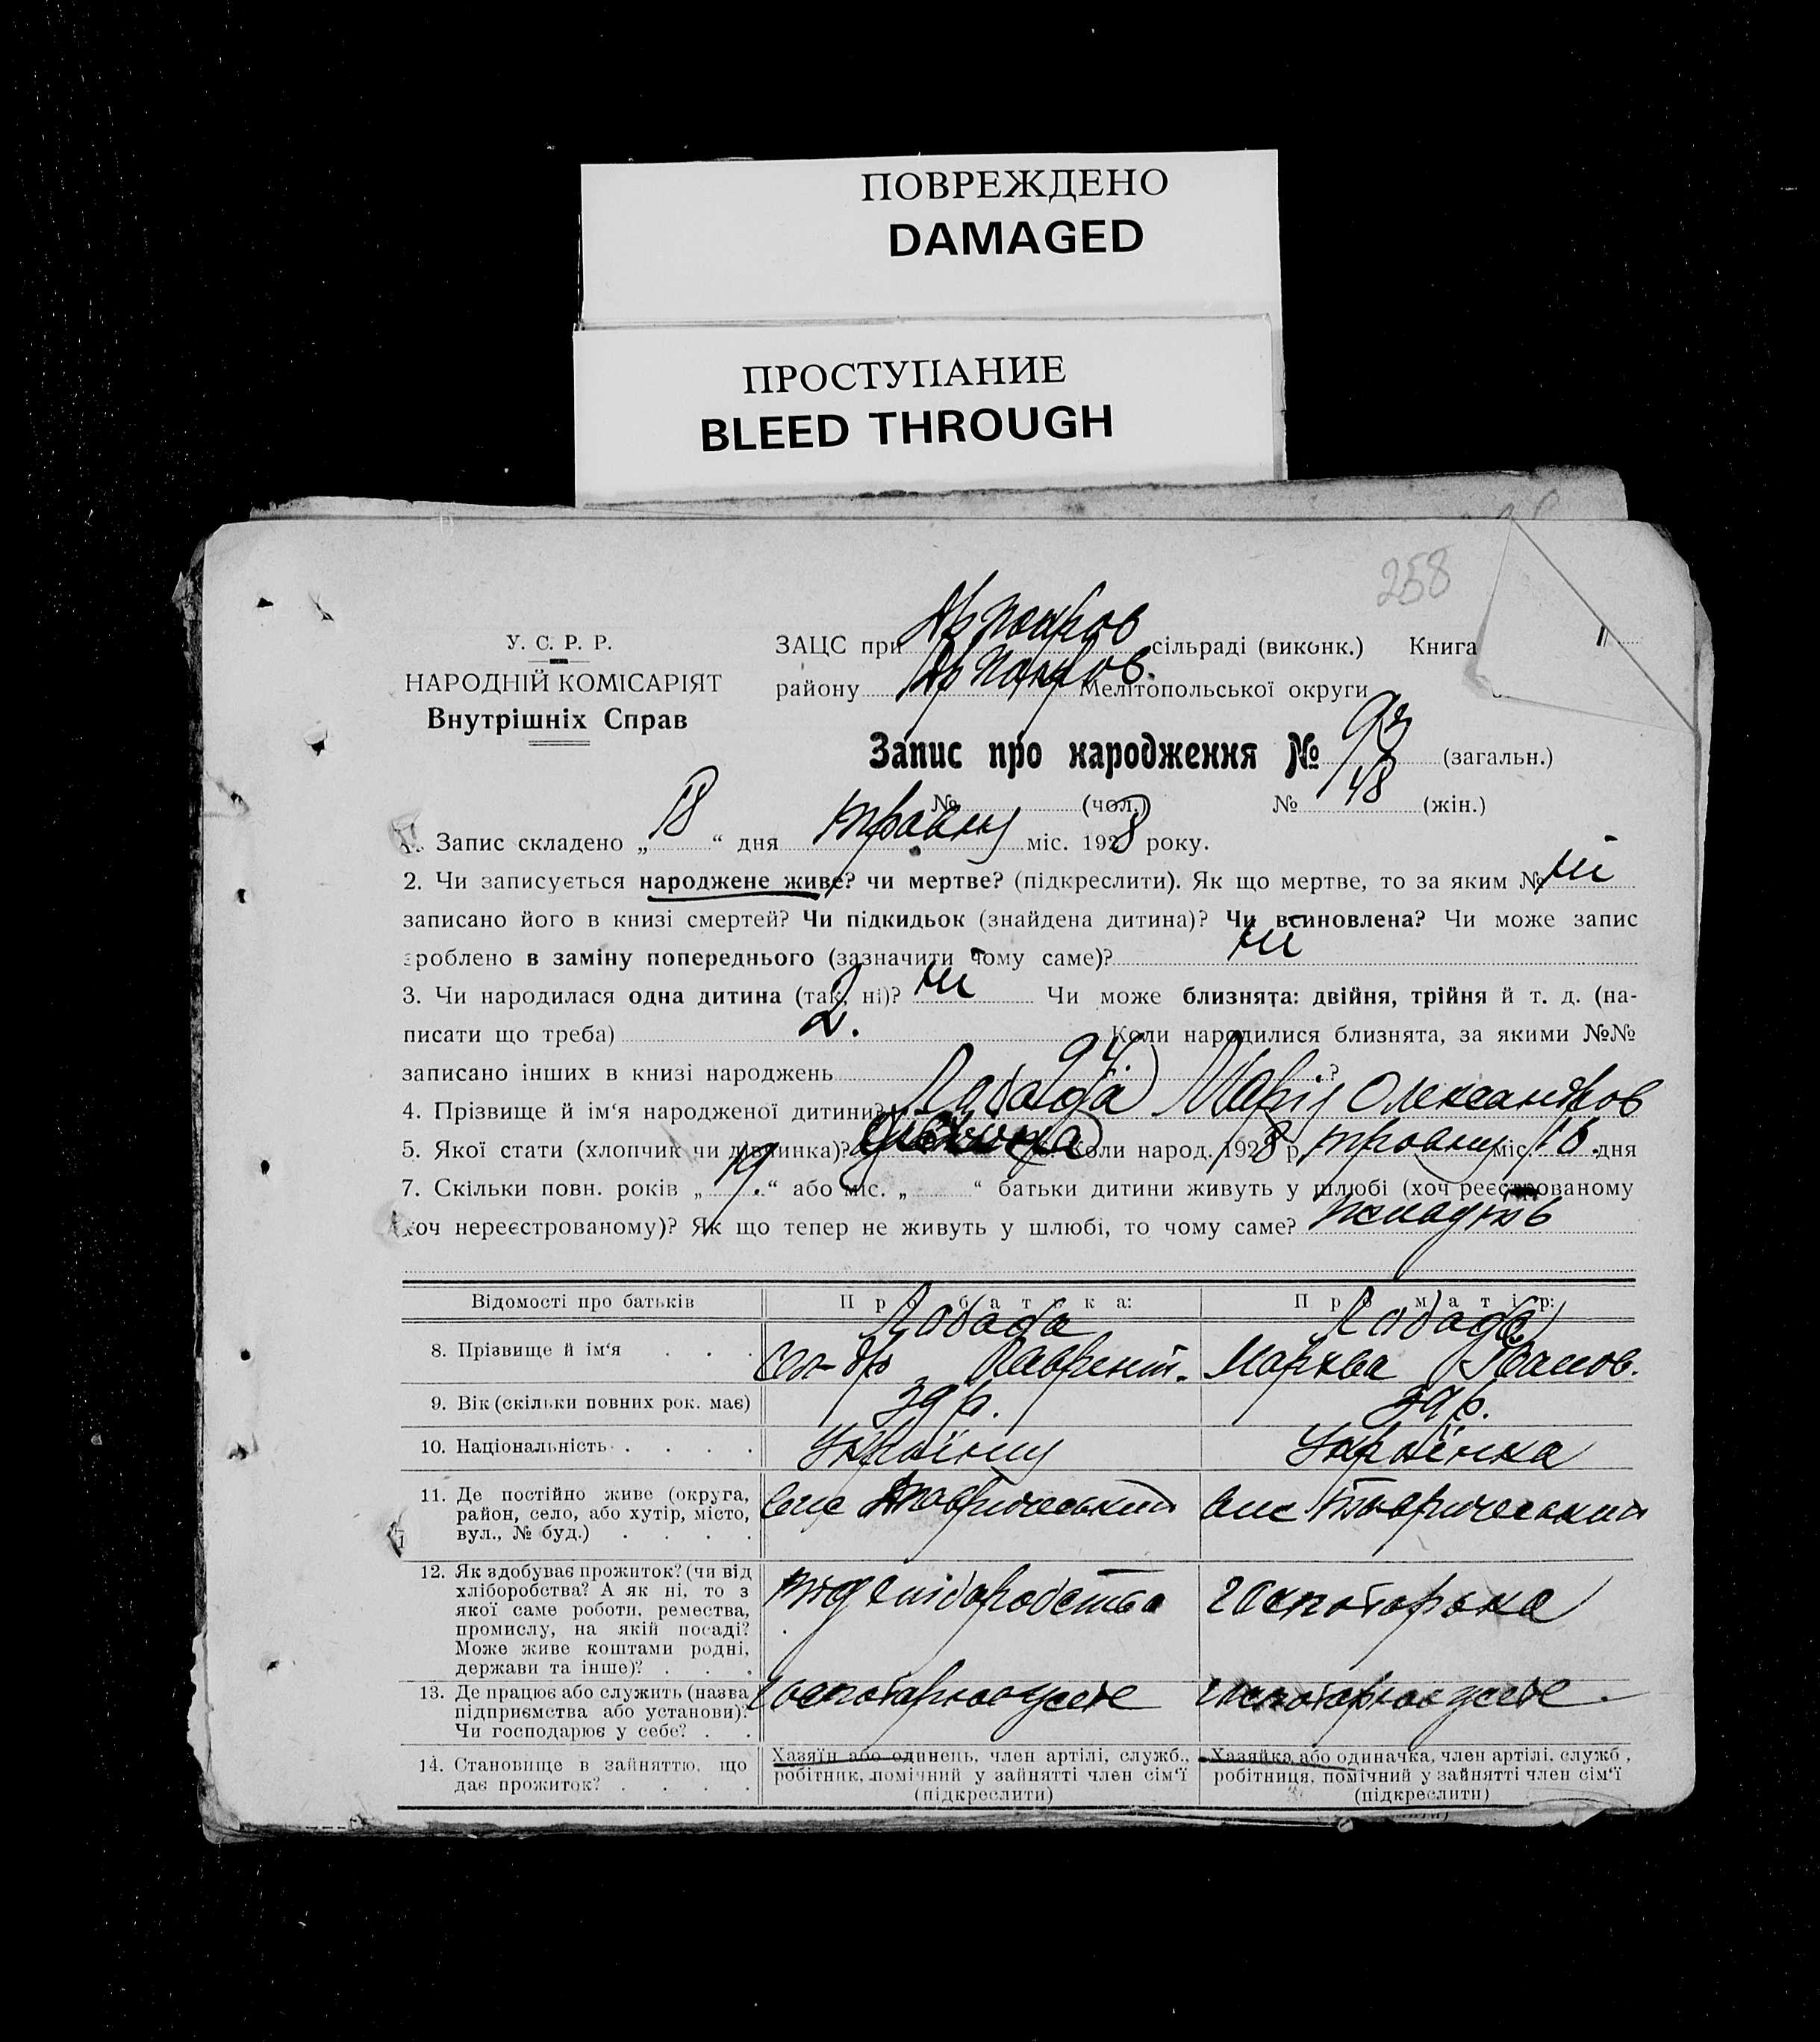 ПОВРЕЖДЕНО
DAMAGED
ПРОСТУПАНИЕ
BLEED THROUGH
258
У. С. Р. Р.
НАРОДНІЙ КОМІСАРІЯТ
Внутрішніх Справ
ЗАЦС при сільраді (виконк.) Книга
району Мелітопольської округи
Запис про народження № 93 (загальн.)
№ (чол.) № 48 (жін.)
1. Запис складено „ 18 “ дня травня міс. 1928 року.
2. Чи записується народжене живе? чи мертве? (підкреслити). Як що мертве, то за яким № ні
записано його в книзі смертей? Чи підкидьок (знайдена дитина)? Чи всиновлена? Чи може запис
зроблено в заміну попереднього (зазначити чому саме)? ні
3. Чи народилася одна дитина (так, ні)? ні Чи може близнята: двійня, трійня й т. д. (на-
писати що треба) 2. Коли народилися близнята, за якими №№
записано інших в книзі народжень 94 ?
4. Прізвище й ім‘я народженої дитини? Лобода Марія Олександров
5. Якої стати (хлопчик чи дівчинка)? дівчина Коли народ. 1928 р. травня міс. 16. дня
7. Скільки повн. років „ 19 “ або міс. „ “ батьки дитини живуть у шлюбі (хоч реєстрованому
хоч нереєстрованому)? Як що тепер не живуть у шлюбі, то чому саме?
Відомості про батьків Про батька: Про матір:
8. Прізвище й ім‘я . . . Лобода Лобода
Лаврент. Марква Іванов.
9. Вік (скільки повних рок. має) 39 р.
10. Національність . . . . Українець Українка
11. Де постійно живе (округа,
район, село, або хутір, місто,
вул., № буд.) . . . .
селе Таврический селе Таврический
12. Як здобуває прожиток? (чи від
хліборобства? А як ні, то з
якої саме роботи, ремества,
промислу, на якій посаді?
Може живе коштами родні,
держави та інше)? . . .
від хліборобства господарька
13. Де працює або служить (назва
підприємства або установи)?
Чи господарює у себе? . .
господарює у себе господарює у себе.
14. Становище в зайняттю, що
дає прожиток? . . . .
Хазяїн або одинець, член артілі, служб.,
робітник, помічний у зайнятті член сім‘ї
(підкреслити)
Хазяйка або одиначка, член артілі, служб.,
робітниця, помічний у зайнятті член сім‘ї
(підкреслити)